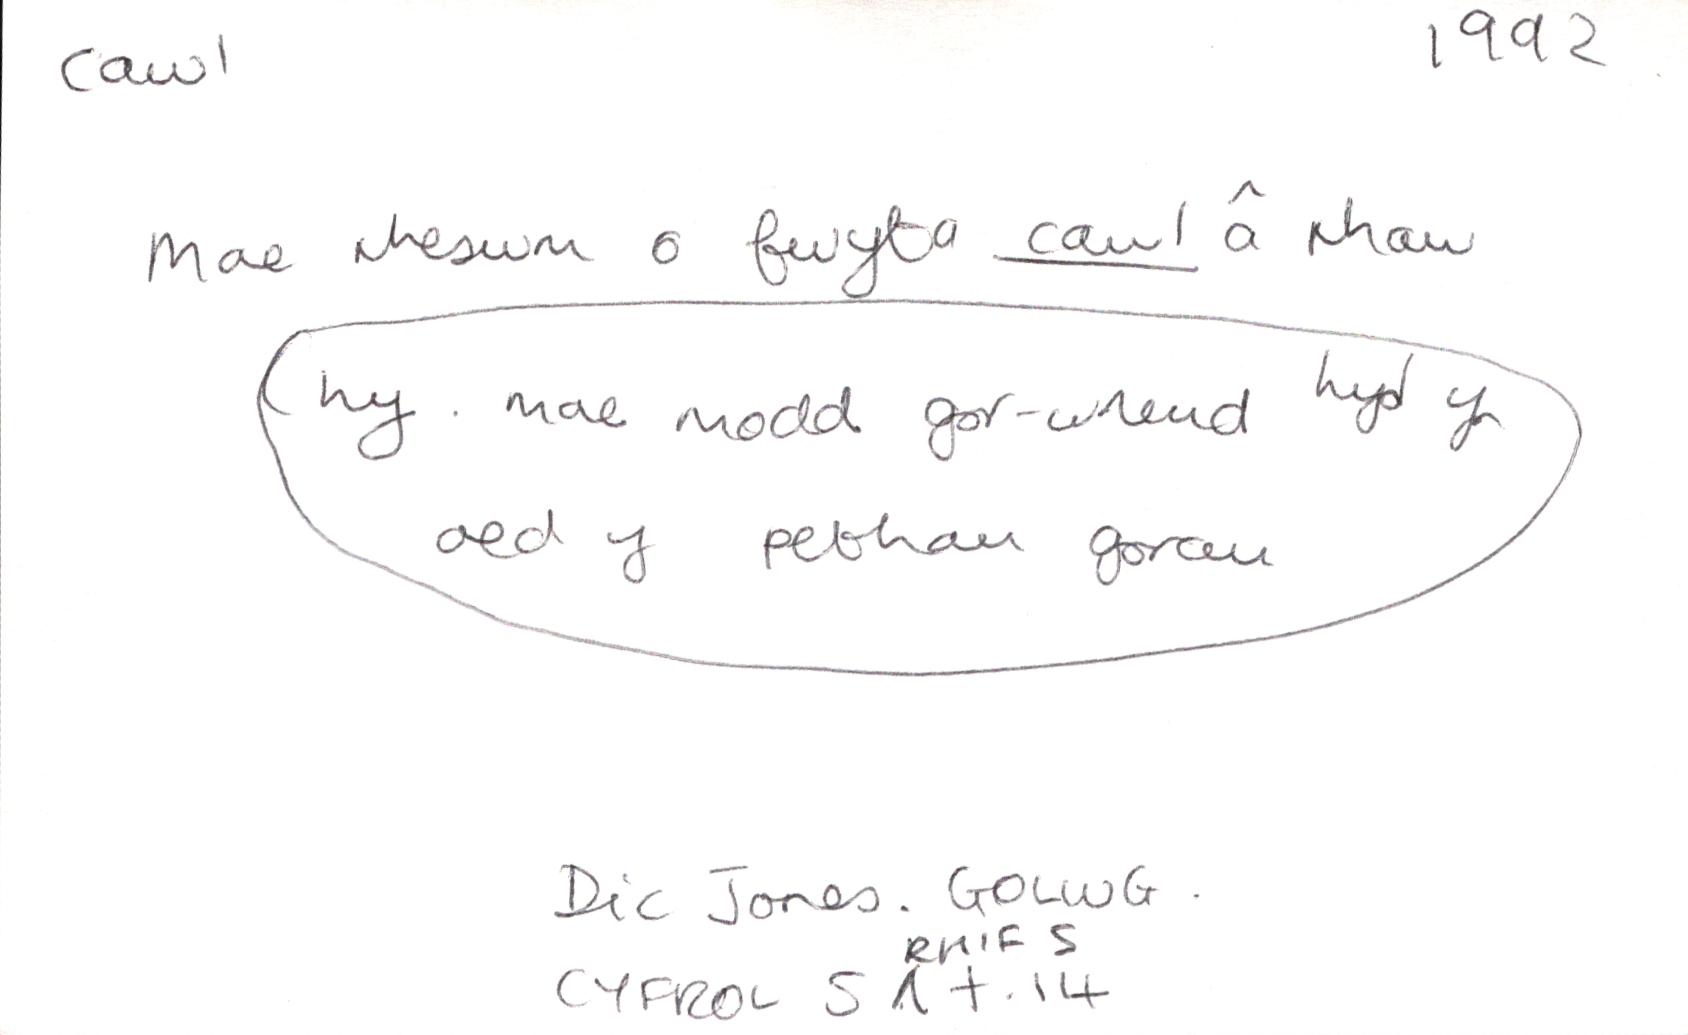 cawl 1992
Mae rheswm o fwyta cawl â rhaw
(hy. mae modd gor-wneud hyd yn
oed y pethau gorau
Dic Jones. GOLWG.
RHIF 5
CYFROL 5 t. 14